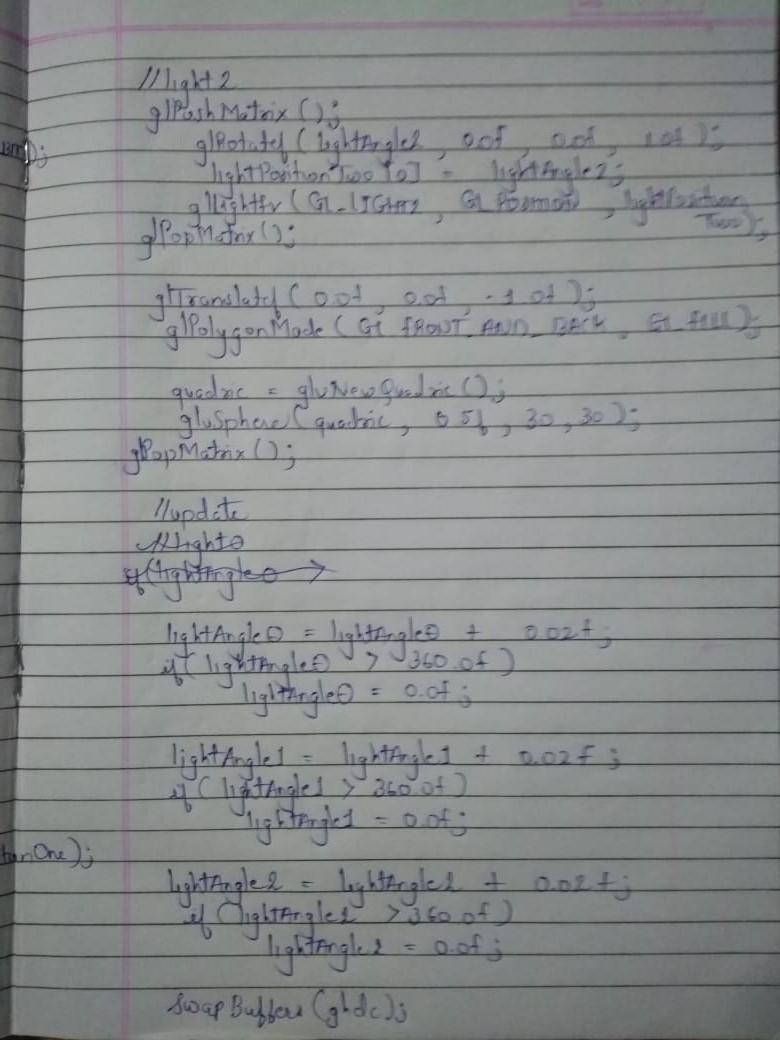 //light2
glPushMatrix();
glRotatef(lightAngle2, 0.0f, 0.0f, 1.0f);
lightPositionTwo[0] = lightAngle2;
glLightfv(GL_LIGHT2, GL_POSITION, lightPosition
Two);
glPopMatrix();
glTranslatef(0.0f, 0.0f, -1.0f);
glPolygonMode(GL_FRONT_AND_BACK, GL_FILL);
quadric = gluNewQuadric();
gluSphere(quadric, 0.5f, 30, 30);
glPopMatrix();
//update
//light0
if(lightAngle0
lightAngle0 = lightAngle0 + 0.02f;
if(lightAngle0 > 360.0f)
lightAngle0 = 0.0f;
lightAngle1 = lightAngle1 + 0.02f;
if(lightAngle1 > 360.0f)
lightAngle1 = 0.0f;
tionOne);
lightAngle2 = lightAngle2 + 0.02f;
if(lightAngle2 > 360.0f)
lightAngle2 = 0.0f;
SwapBuffers(ghdc);